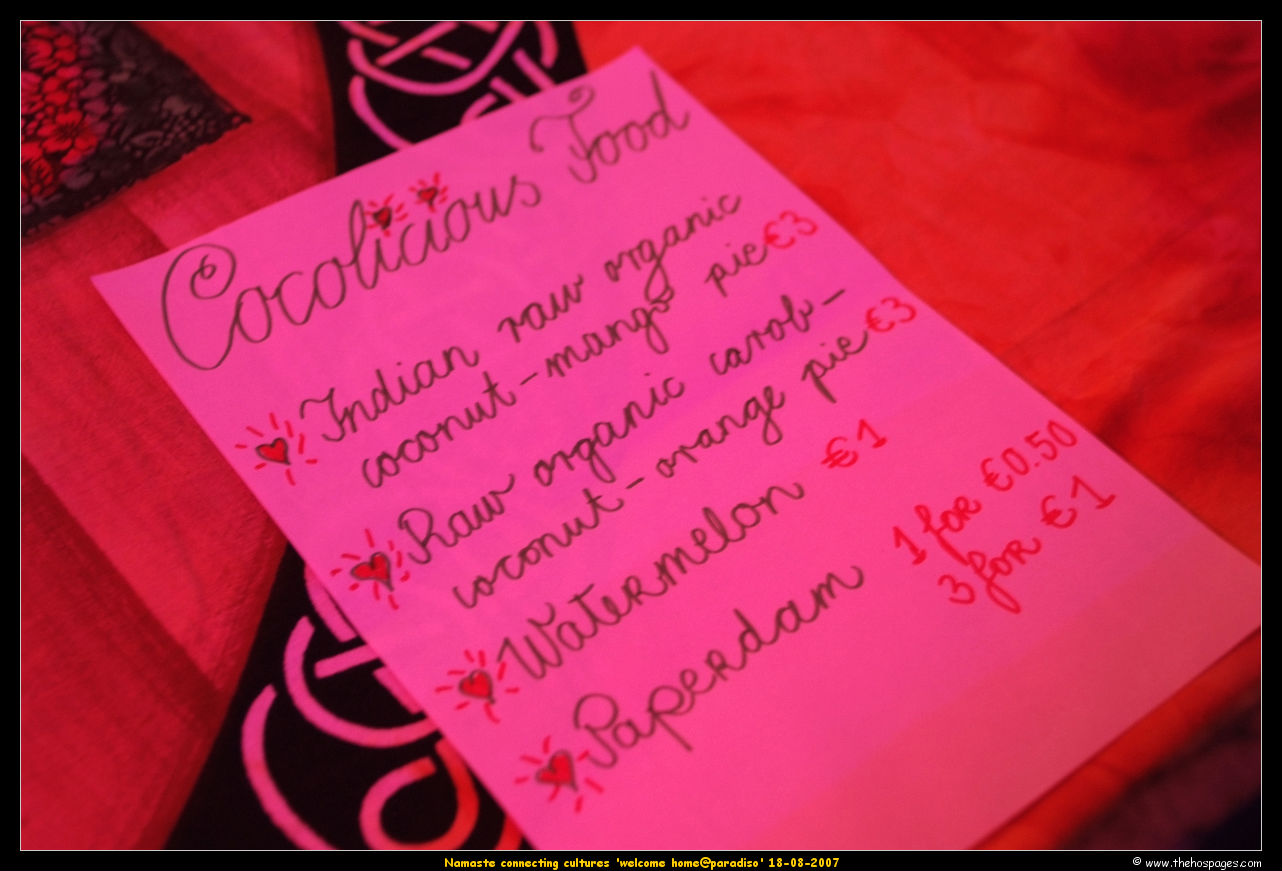 Cocolicious Food
Indian raw organic
coconut-mango pie €3
Raw organic carob-
coconut-orange pie €3
Watermelon €1
Paperdam 1 for €0.50
3 for €1
Namaste connecting cultures 'welcome home@paradiso' 18-08-2007
© www.thehospages.com